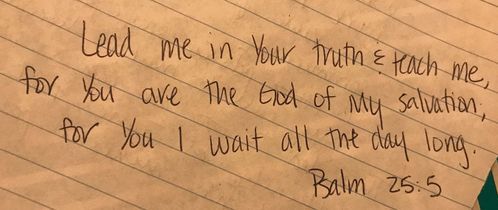 Lead me in Your truth & teach me,
for You are the God of My salvation;
for You I wait all the day long.
Psalm 25:5